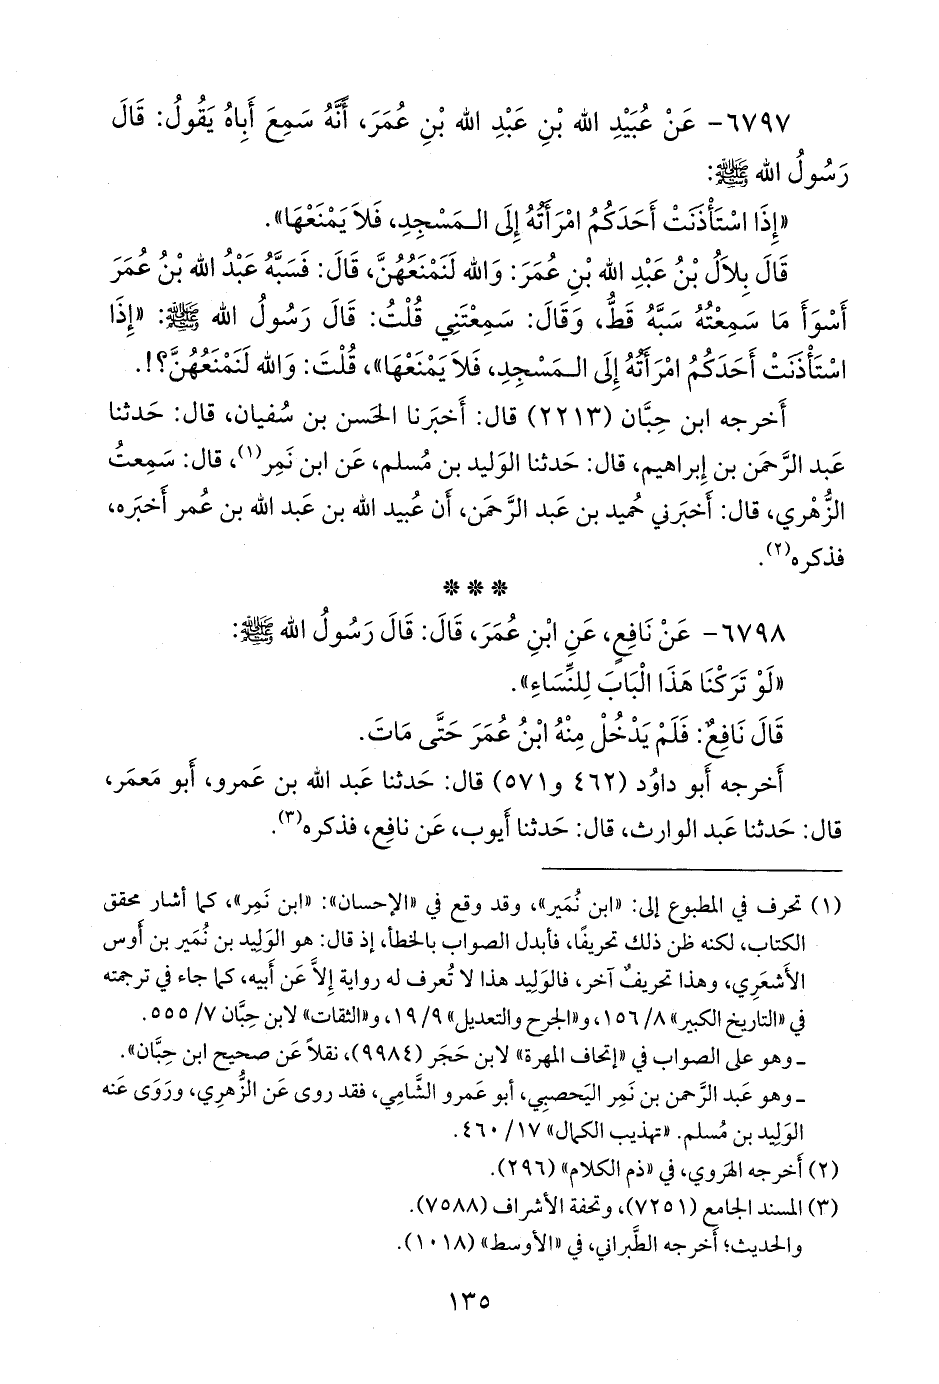 ٦٧٩٧- عَنْ عُبَيْدِ الله بْنِ عَبْدِ الله بْنِ عُمَرَ، أَنَّهُ سَمِعَ أَبِاهُ يَقُولُ: قَالَ
رَسُولُ الله ﷺ:
«إِذَا اسْتَأْذَنَتْ أَحَدَكُمُ امْرَأَتُهُ إِلَى الْمَسْجِدِ، فَلاَ يَمْنَعْهَا».
قَالَ بِلاَلُ بْنُ عَبْدِ الله بْنِ عُمَرَ: وَالله لَنَمْنَعُهُنَّ، قَالَ: فَسَبَّهُ عَبْدُ الله بْنُ عُمَرَ
أَسْوَأَ مَا سَمِعْتُهُ سَبَّهُ قَطُّ، وَقَالَ: سَمِعْتَنِي قُلْتُ: قَالَ رَسُولُ الله ﷺ: «إِذَا
اسْتَأْذَنَتْ أَحَدَكُمُ امْرَأَتُهُ إِلَى الْمَسْجِدِ، فَلاَ يَمْنَعْهَا»، قُلْتَ: وَالله لَنَمْنَعُهُنَّ؟!.
أَخرجه ابن حِبَّان (٢٢١٣) قال: أَخبَرنا الحَسن بن سُفيان، قال: حَدثنا
عَبد الرَّحمَن بن إِبراهيم، قال: حَدثنا الوَليد بن مُسلم، عَن ابن نَمِر(١)، قال: سَمِعتُ
الزُّهْري، قال: أَخبَرني حُميد بن عَبد الرَّحمَن، أَن عُبيد الله بن عَبد الله بن عُمر أَخبَره،
فذكره(٢).
* * *
٦٧٩٨- عَنْ نَافِعٍ، عَنِ ابْنِ عُمَرَ، قَالَ: قَالَ رَسُولُ الله ﷺ:
«لَوْ تَرَكْنَا هَذَا الْبَابَ لِلنِّسَاءِ».
قَالَ نَافِعٌ: فَلَمْ يَدْخُلْ مِنْهُ ابْنُ عُمَرَ حَتَّى مَاتَ.
أَخرجه أَبو داوُد (٤٦٢ و٥٧١) قال: حَدثنا عَبد الله بن عَمرو، أَبو مَعمَر،
قال: حَدثنا عَبد الوارث، قال: حَدثنا أَيوب، عَن نافِع، فذكره(٣).
(١) تحرف في المطبوع إلى: «ابن نُمَير»، وقد وقع في «الإحسان»: «ابن نَمِر»، كما أشار محقق
الكتاب، لكنه ظن ذلك تحريفًا، فأبدل الصواب بالخطأ، إذ قال: هو الوَليد بن نُمَير بن أوس
الأشعَري، وهذا تحريفٌ آخر، فالوَليد هذا لا تُعرف له رواية إِلاَّ عَن أبيه، كما جاء في ترجمته
في «التاريخ الكبير» ٨/ ١٥٦، و«الجرح والتعديل» ٩/ ١٩، و«الثقات» لابن حِبَّان ٧/ ٥٥٥.
ـ وهو على الصواب في «إتحاف المهرة» لابن حَجَر (٩٩٨٤)، نقلاً عَن صحيح ابن حِبَّان».
ـ وهو عَبد الرَّحمن بن نَمِر اليَحصبِي، أبو عَمرو الشَّامي، فقد روى عَن الزُّهري، ورَوَى عَنه
الوَليد بن مُسلم. «تهذيب الكمال» ١٧/ ٤٦٠.
(٢) أَخرجه الهَروي، في «ذم الكلام» (٢٩٦).
(٣) المسند الجامع (٧٢٥١)، وتحفة الأشراف (٧٥٨٨).
والحديث؛ أَخرجه الطَّبراني، في «الأوسط» (١٠١٨).
١٣٥